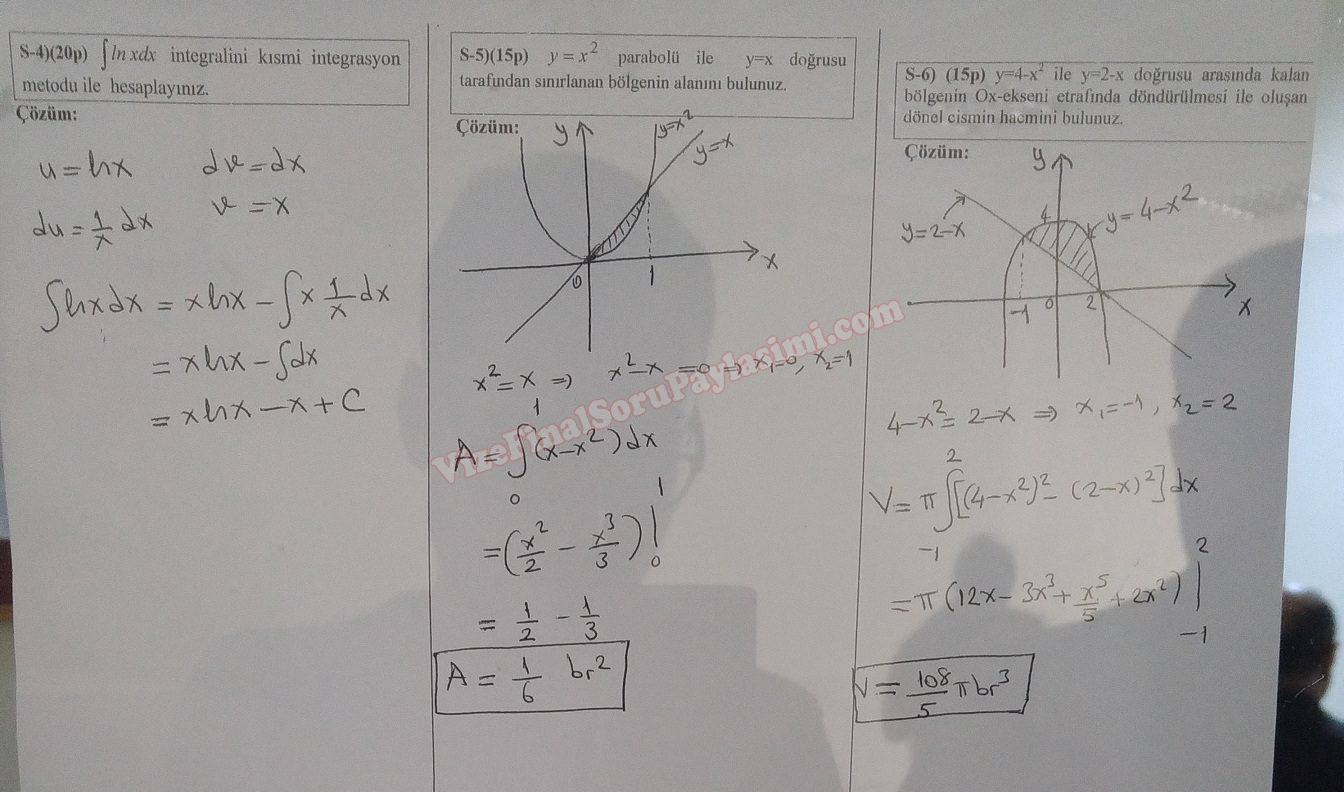 S-4)(20p) ∫ln xdx integralini kısmi integrasyon
metodu ile hesaplayınız.
Çözüm:
u = lnx dv = dx
du = 1/x dx v = x
∫lnxdx = xlnx - ∫x 1/x dx
= xlnx - ∫dx
= xlnx - x + C
S-5)(15p) y = x² parabolü ile y=x doğrusu
tarafından sınırlanan bölgenin alanını bulunuz.
Çözüm:
y
y=x²
y=x
x
0
1
x² = x ⇒ x² - x = 0 ⇒ x₁=0, x₂=1
A = ∫₀¹ (x-x²)dx
= (x²/2 - x³/3) |₀¹
= 1/2 - 1/3
A = 1/6 br²
S-6) (15p) y=4-x² ile y=2-x doğrusu arasında kalan
bölgenin Ox-ekseni etrafında döndürülmesi ile oluşan
dönel cismin hacmini bulunuz.
Çözüm:
y
4
y=4-x²
y=2-x
-1
0
2
x
4-x² = 2-x ⇒ x₁=-1, x₂=2
V = π ∫₋₁² [(4-x²)² - (2-x)²]dx
= π (12x - 3x³ + x⁵/5 + 2x²) |₋₁²
V = 108/5 π br³
VizeFinalSoruPaylasimi.com